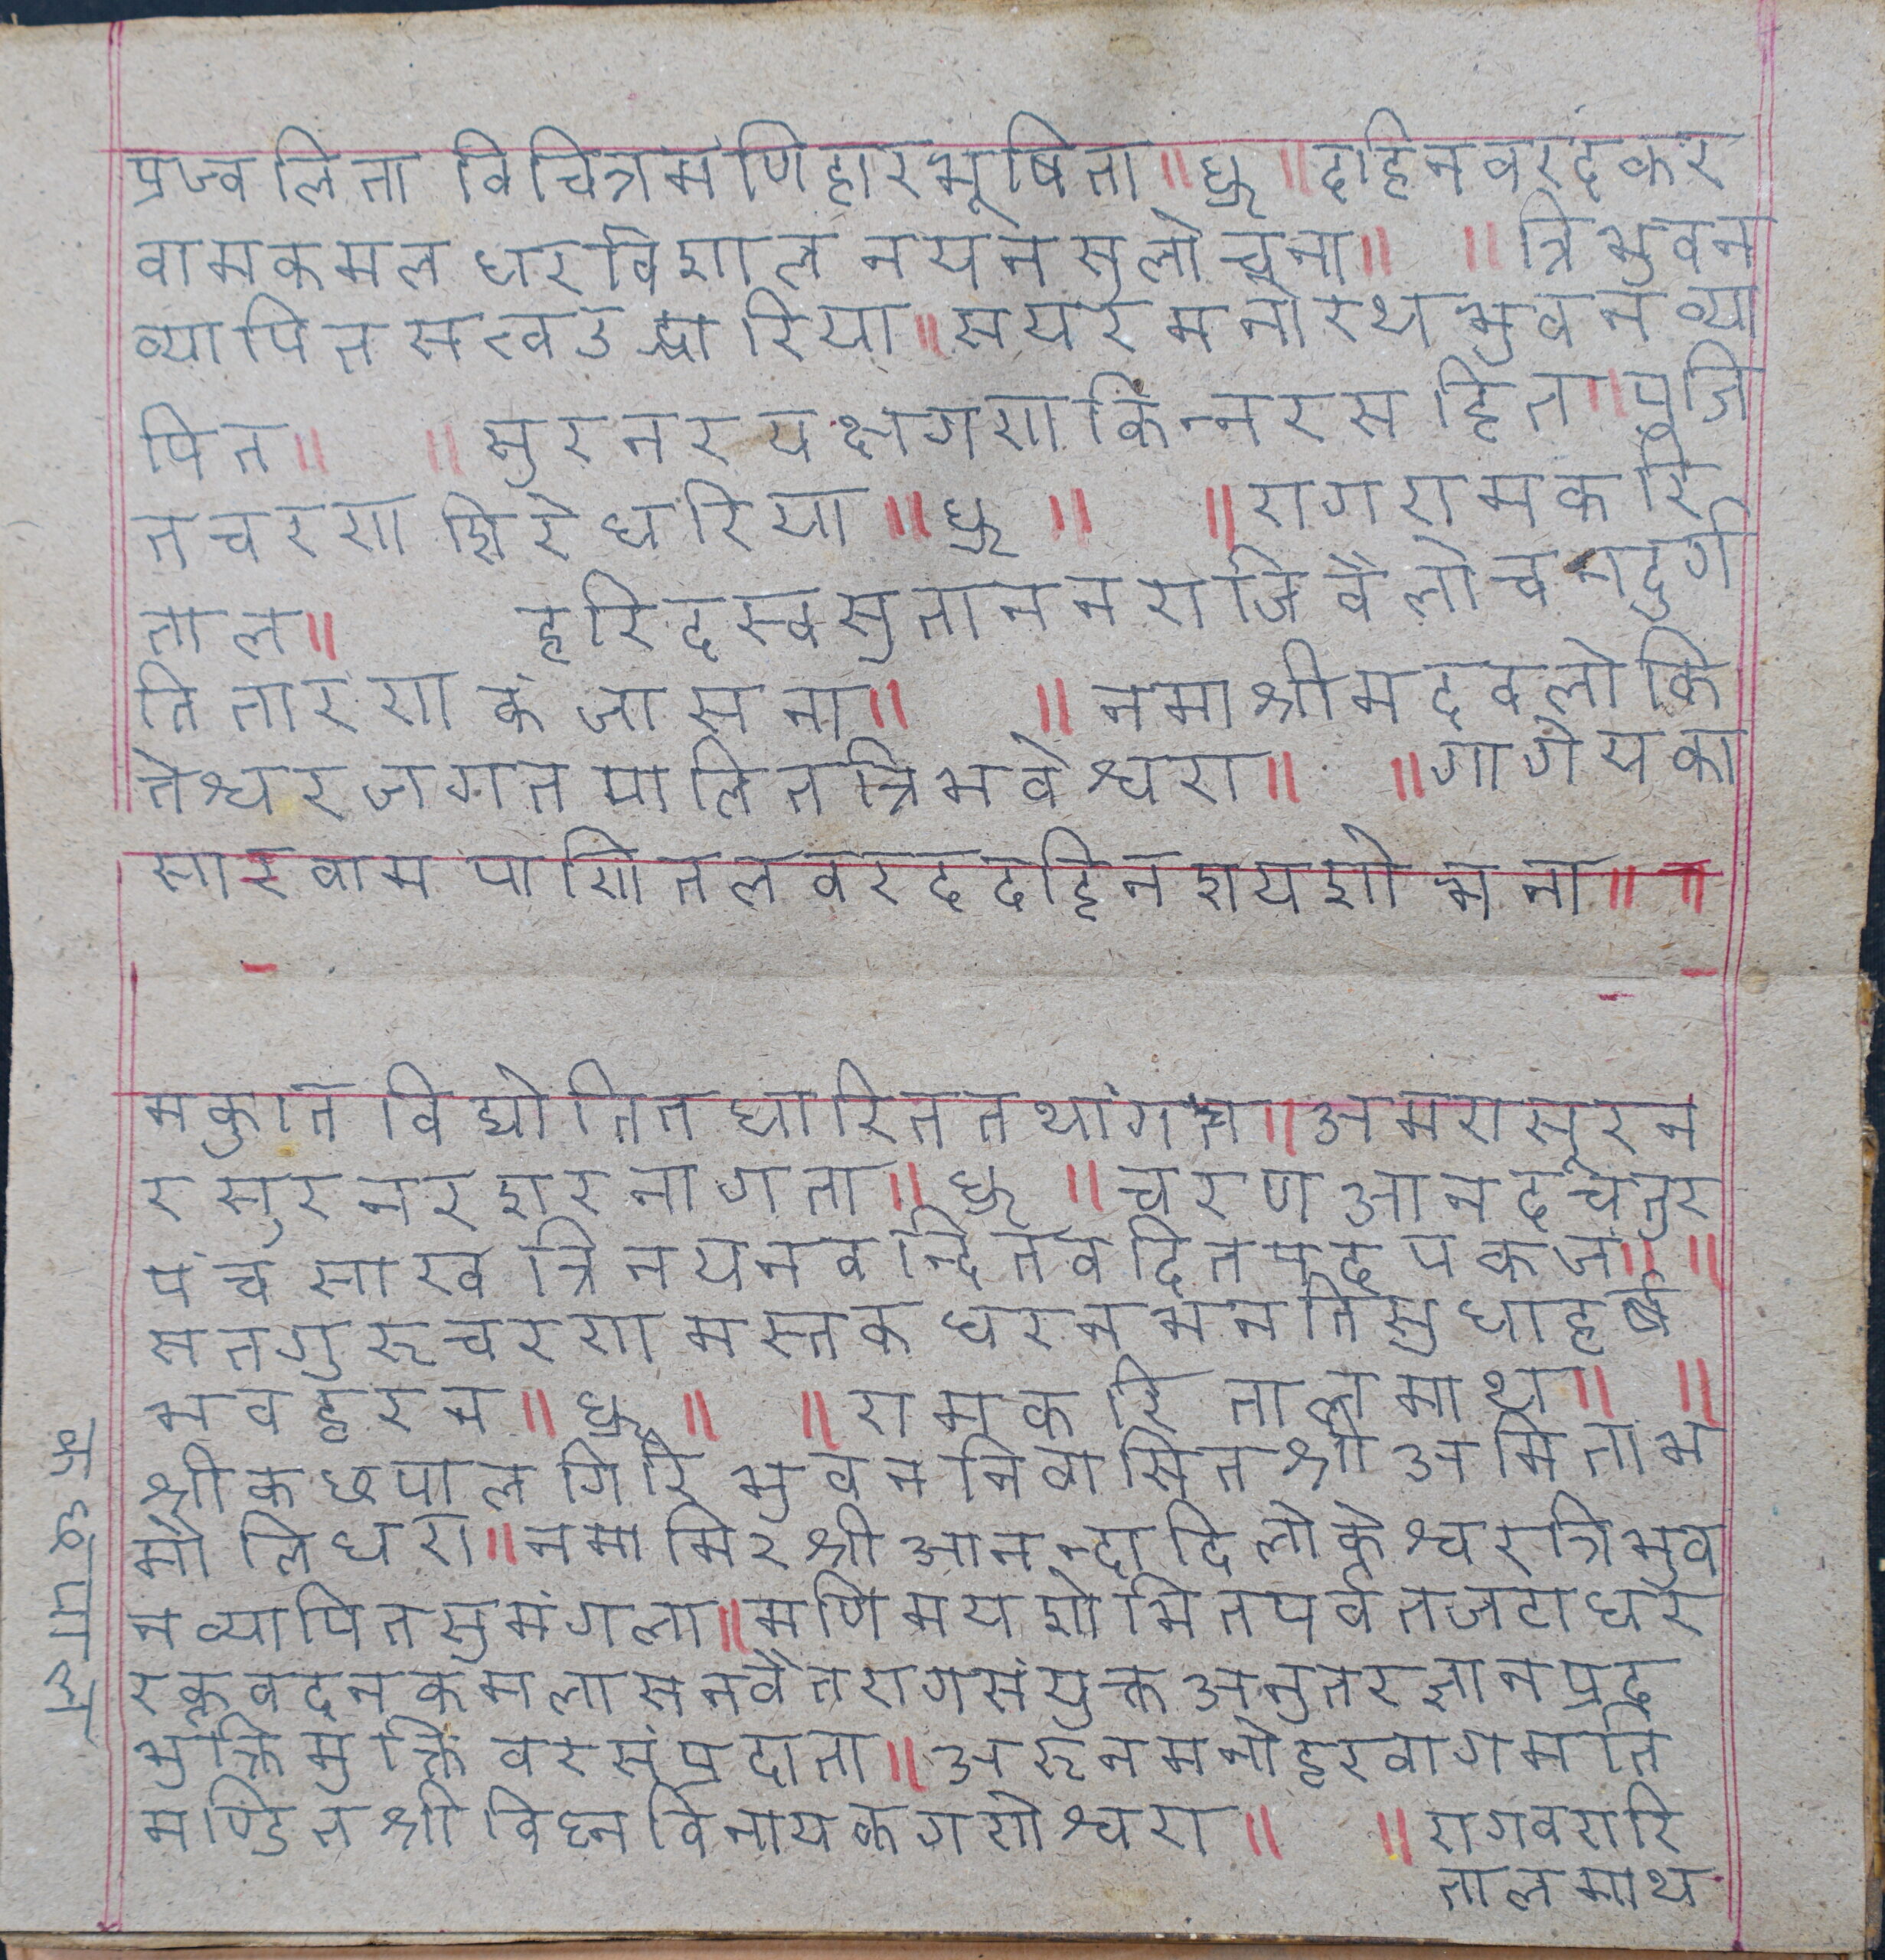 प्रज्वलिता विचित्रमंणिहारभूषिता॥ध्रु॥दाहिनवरदकर
वामकमलधरविशालनयनसुलोचना॥ ॥त्रिभुवन
व्यापितसत्वउद्धारिया॥सयरमनोरथभुवनव्या
पित॥ ॥सुरनरयक्षगणकिन्नरसहित॥पूजि
तचरणशिरेधरिया॥ध्रु॥ ॥रागरामकरि
ताल॥ हरिदस्वसुताननराजिवैलोचनदुर्ग
तितारणकंजासना॥ ॥नमाश्रीमदवलोकि
तेश्वरजगतपालितत्रिभवेश्वरा॥ ॥गागेयका
सारवामपाणितलवरददाहिनशयशोभना॥ ॥
मकुतविद्योतितधारिततथांगत॥अमरासूरन
रसुरनरशरनागता॥ध्रु॥चरणआनदचतुर
पंचसाखत्रिनयनवन्दितवदितपदपकज॥ ॥
सतगुरूचरणमस्तकधरनभनतिसुधाहर्ष
भवहरन॥ध्रु॥ ॥रामकरि तालमाथ॥ ॥
श्रीकछपालगिरिभुवननिवासितश्रीअमिताभ
मौलिधरा॥नमामि२श्रीआनन्दादिलोकेश्वरत्रिभुव
नव्यापितसुमंगला॥मणिमयशोभितपर्वतजटाधर
रक्तवदनकमलासनवैतरागसंयुक्तअनुतरज्ञानप्रद
भुक्तिमुक्तिवरसंप्रदाता॥अरूनमनोहरवागमति
मण्डितश्रीविघ्नविनायकगणेश्वरा॥ ॥रागवरारि
तालमाथ